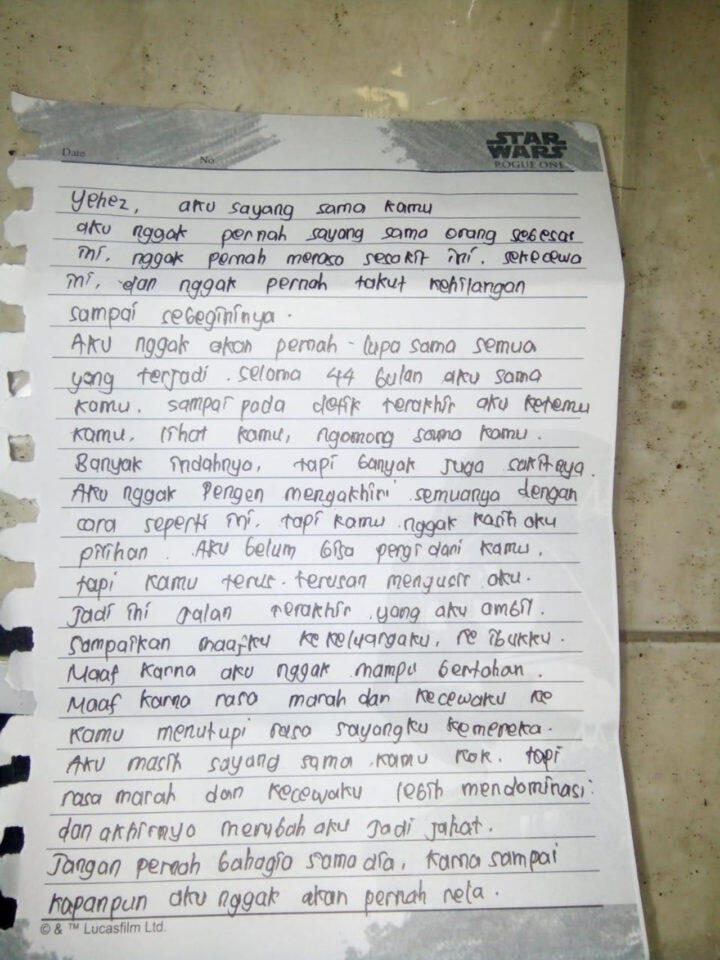 Date
No
STAR
WARS
ROGUE ONE
Yehez, aku sayang sama kamu
aku nggak pernah sayang sama orang sebesar
ini, nggak pernah meraso sesakit ini. sekecewa
ini, dan nggak pernah takut kehilangan
sampai sebegininya.
Aku nggak akan pernah - lupa sama semua
yang terjadi. selama 44 bulan aku sama
kamu. sampai pada detik terakhir aku ketemu
kamu, lihat kamu, ngomong sama kamu.
Banyak indahnya, tapi banyak juga sakitnya.
Aku nggak pengen mengakhiri semuanya dengan
cara seperti ini. tapi kamu nggak kasih aku
pilihan. Aku belum bisa pergi dari kamu,
tapi kamu terus-terusan mengusir aku.
Jadi ini jalan terakhir yang aku ambil.
Sampaikan maafku ke keluargaku, ke ibukku.
Maaf karna aku nggak mampu bertahan.
Maaf karna rasa marah dan kecewaku ke
kamu menutupi rasa sayangku kemereka.
Aku masih sayang sama kamu kok. tapi
rasa marah dan kecewaku lebih mendominasi
dan akhirnya merubah aku jadi jahat.
Jangan pernah bahagia sama dia, karna sampai
kapanpun aku nggak akan pernah rela.
© & ™ Lucasfilm Ltd.